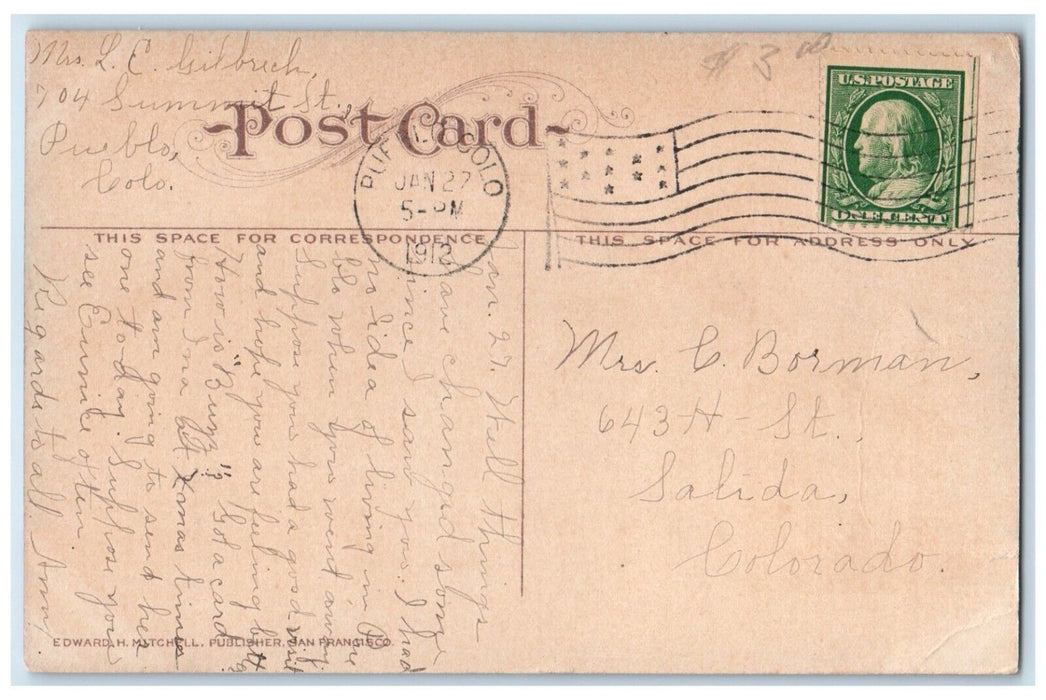 Mrs. L. C. Gilbrech,
704 Summit St.,
Pueblo,
Colo.
$3.00
Post Card
PUEBLO, COLO
JAN 27
5-PM
1912
U.S. POSTAGE
ONE CENT
THIS SPACE FOR CORRESPONDENCE
THIS SPACE FOR ADDRESS ONLY
Jan. 27. Well things
have changed some
since I saw you. I had
no idea of living in P
blo when you went away
Suppose you had a good visit
and hope you are feeling bett
How is "Buzz"? Got a card
from Ina at Xmas time
and am going to send her
one to-day. Suppose you
see Eunice often.
Regards to all.
Mrs. C. Borman,
643 H - St.,
Salida,
Colorado.
EDWARD H. MITCHELL, PUBLISHER, SAN FRANCISCO.